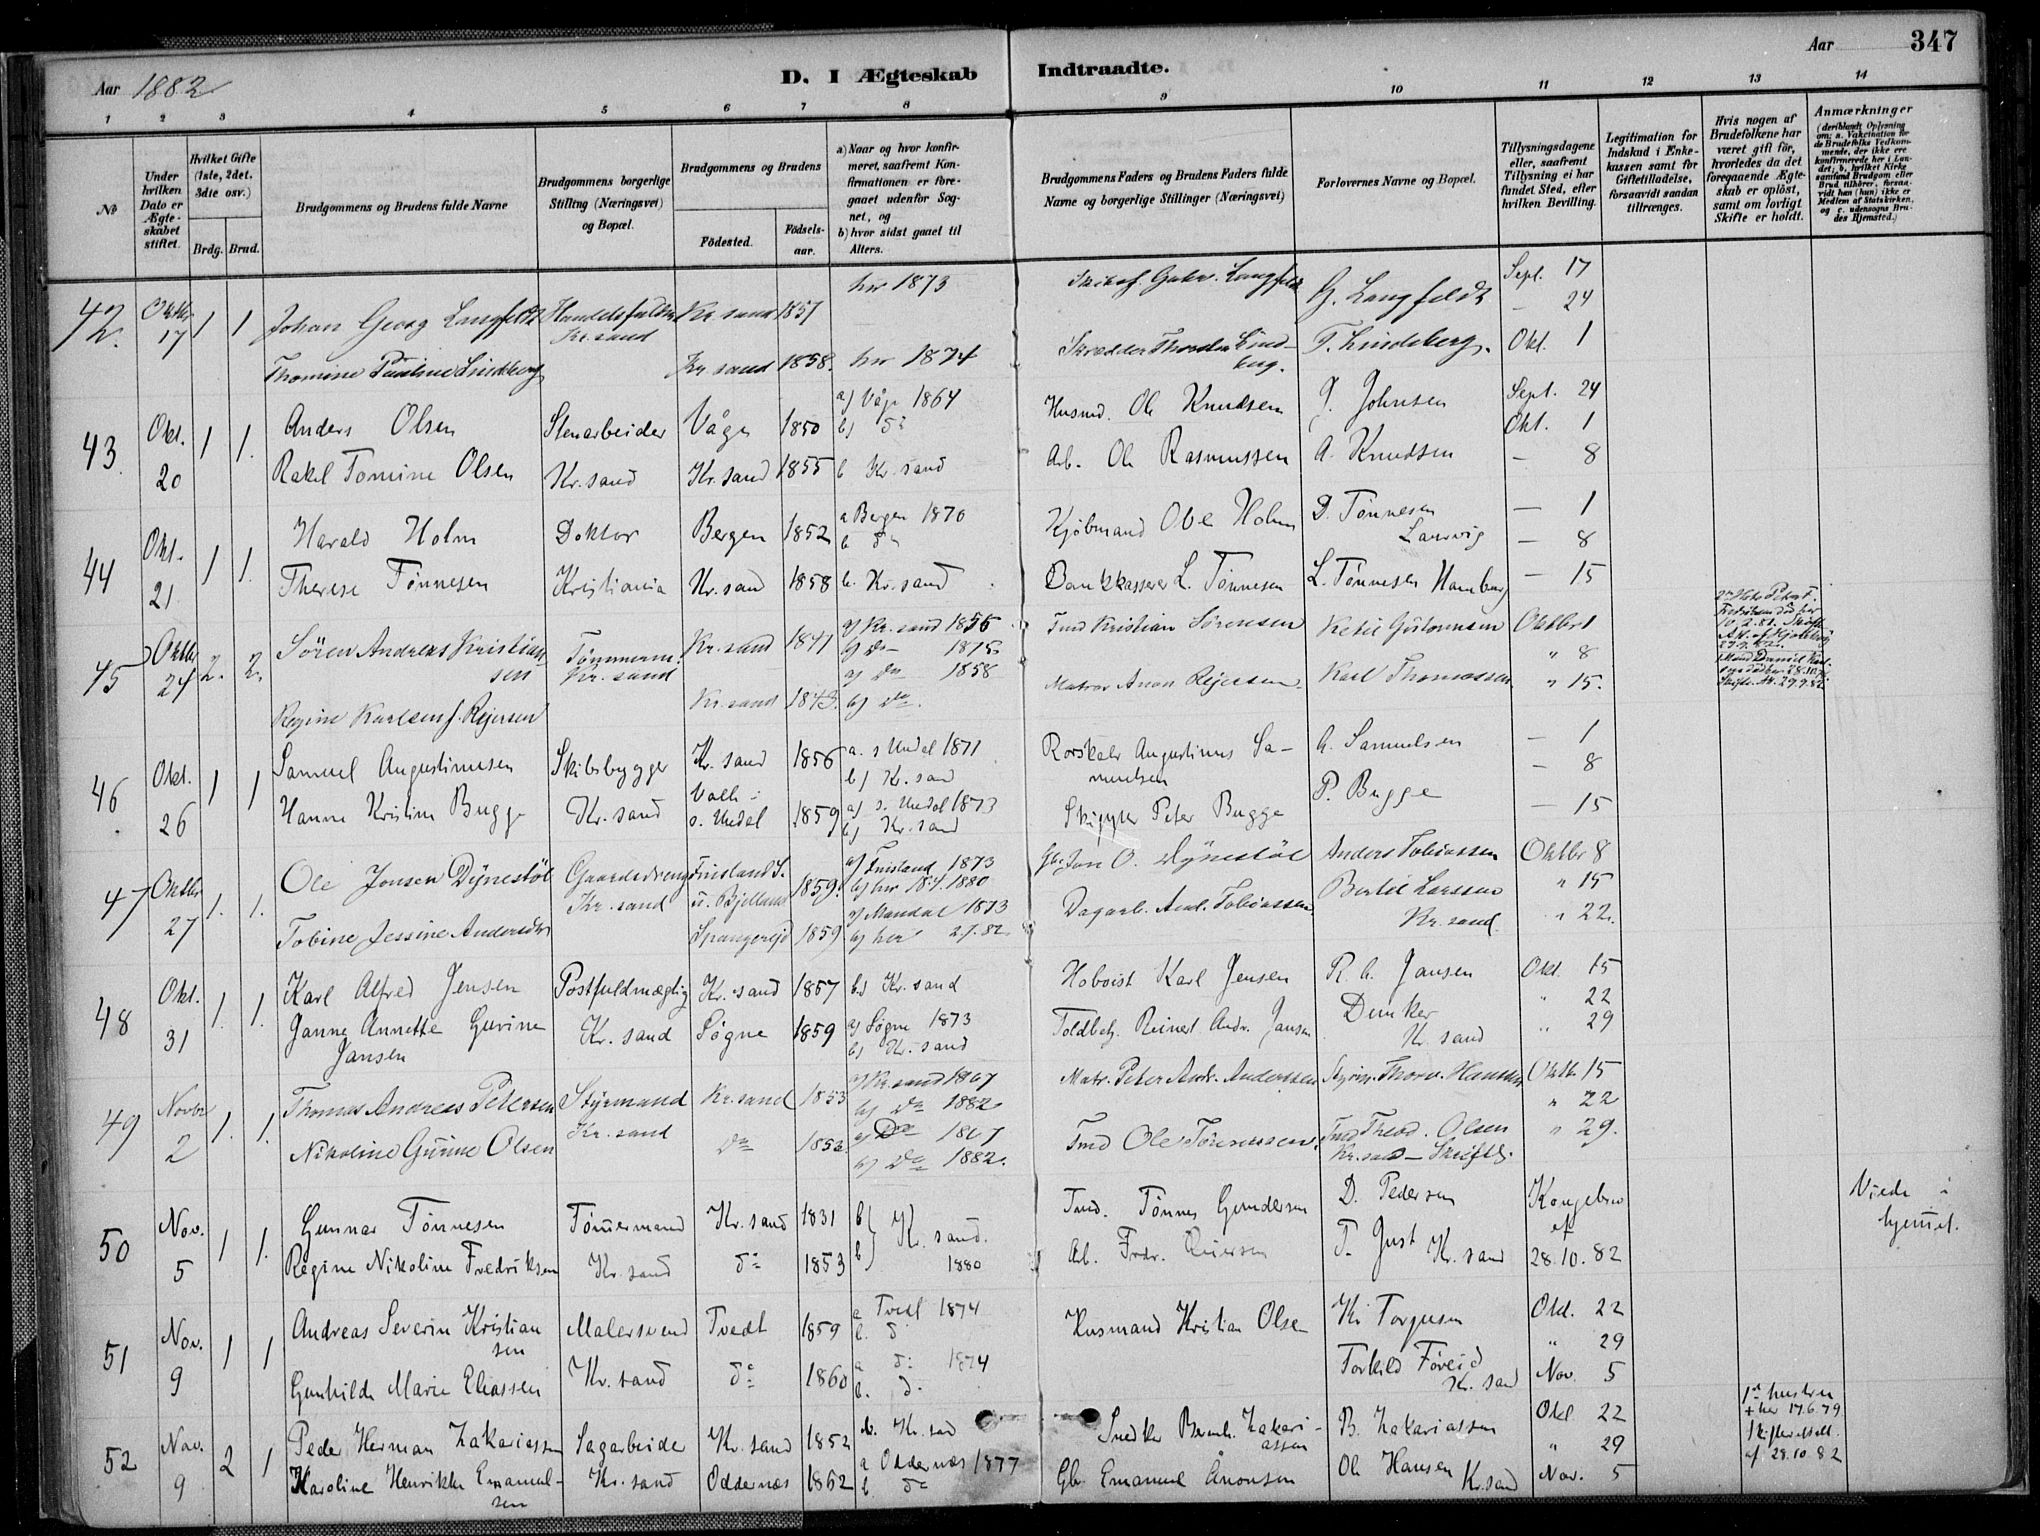 Aar 1882
D. I Ægteskab Indtraadte.
Aar 347
1 2 3 4 5 6 7 8 9 10 11 12 13 14
No
Under hvilken Dato er Ægteskabet stiftet.
Hvilket Gifte (1ste, 2det, 3dte osv.)
Brdg. Brud.
Brudgommens og Brudens fulde Navne
Brudgommens borgerlige Stilling (Næringsvei) og Bopæl.
Brudgommens og Brudens
Fødested. Fødselsaar.
a) Naar og hvor konfirmeret, saafremt Konfirmationen er foregaaet udenfor Sognet, og
b) hvor sidst gaaet til Alters.
Brudgommens Faders og Brudens Faders fulde Navne og borgerlige Stillinger (Næringsvei)
Forlovernes Navne og Bopæl.
Tillysningsdagene eller, saafremt Tillysning ei har fundet Sted, efter hvilken Bevilling.
Legitimation for Indskud i Enkekassen samt for Giftetilladelse, forsaavidt saadan tiltrænges.
Hvis nogen af Brudefolkene har været gift før, hvorledes da det foregaaende Ægteskab er opløst, samt om lovligt Skifte er holdt.
Anmærkninger
42 Oktbr 17 1 1 Johan Georg Langfeldt Kr.sand Kr sand 1857 her 1873 Gabr. Langfeldt G. Langfeldt Sept. 17
— 24
Thomine Pauline Lindeberg Kr sand 1858. her 1874 Skrædder Lindeberg. T. Lindeberg. Okt. 1
43 Okt. 20 1 1. Anders Olsen Stenarbeider Vågn 1850 a) Vågn 1864 b) do Husmd. Ole Knudsen J. Johnsen Sept. 24
Okt. 1
Rakel Tomine Olsen Kr. sand Kr. sand 1855 b Kr. sand Arb. Ole Rasmussen A. Knudsen — 8
44 Okt. 21 1 1. Harald Holm Doktor Bergen 1852 a Bergen 1870 b do Kjøbmand Ole Holm D. Tønnesen Laurvig — 1
— 8
Therese Tønnesen Kristiania Kr. sand 1858 b. Kr. sand Bankkasserer L. Tønnesen L. Tønnesen Hamburg — 15
45 Oktbr 24 2. 2. Søren Andreas Kristianssen Tømmerm. Kr. sand Kr. sand 1841 a) Kr. sand 1856 b) Do 1875 Tmd Kristian Sørensen Ketil Gustavesen Oktbr 1
" 8
Regine Karlsen f. Reiersen Kr. sand 1843. a) Do 1858 b) Do. Matros Anon Reiersen. Karl Thomassen " 15.
46 Okt. 26 1 1 Samuel Augustinusen Skibsbygger Kr. sand 1856 a. s Undal 1871 b) Kr. sand Rorskarl Augustinus Samuelsen A. Samuelsen — 1
— 8
Hanne Kristine Bugge Kr. sand Valle i s. Undal 1859 a) s. Undal 1873 b) Kr. sand Skipper Peter Bugge P. Bugge — 15
47 Oktbr 27 1. 1. Ole Jonsen Dynestøl Gaardsdreng Kr. sand Finsland S. u. Bjelland 1859. a) Finsland 1873 b) her 1880 Gbr. Jon O. Dynestøl Anders Tobiassen Oktbr 8
" 15
Tobine Jessine Andersdtr Spangereid 1859. a) Mandal 1873 b) her 82 Dagarb. And. Tobiassen Bertil Larssen Kr. sand. " 22.
48 Okt. 31 1. 1. Karl Alfred Jensen Postfuldmægtig Kr. sand 1857 b) Kr. sand Hoboist Karl Jensen R. A. Jansen Okt. 15
" 22
Janne Annette Gurine Jansen Kr. sand Søgne 1859 a) Søgne 1873 b) Kr. sand Toldbetj. Reinert Andr. Jansen Dunker Kr. sand " 29
49 Novbr 2 1. 1. Thomas Andreas Petersen Styrmand Kr. sand Kr. sand 1853 a) Kr. sand 1867 b) Do 1882 Matr. Peter Andr. Anderssen Styrm. Thorv. Hansen Oktb. 15
" 22
Nikoline Gurine Olsen Do 1852 a) Do 1867 b) Do 1882. Tmd Ole Tønnessen. Tmd Theod. Olsen Kr. sand " 29.
50 Nov. 5 1 1. Gunnar Tønnesen Tømmermand Kr. sand 1831 b) Kr. sand. Tmd. Tønnes Gundersen D. Pedersen Kongebrev af
Regine Nikoline Fredriksen Kr. sand do 1853 b 1880 Arb. Fredr. Reiersen T. Just Kr. sand 28.10.82 Viede i hjemmet.
51 Nov. 9 1 1 Andreas Severin Kristiansen Malersvend Tvedt 1859 a Tvedt 1874 b. d Husmand Kristian Olsen Kr. Torgusen Okt. 22
" 29
Gunhilde Marie Eliassen Kr. sand do 1860 a do 1874 b. d. Torkild Føreid Kr. sand Nov. 5
52 Nov. 9 2 1 Peder Herman Zakariassen Sagarbeider Kr. sand 1852 b. Kr. sand Snedker Bernh. Zakariassen B. Zakariassen Okt 22
" 29
Karoline Henrikke Emanuelsen Kr. sand Oddernæs 1862 a Oddernæs 1877 b. do Gbr. Emanuel Aanonsen Ole Hansen Kr. sand Nov. 5
1ste hustru + her 17.6.79 Skifteattest af 28.10.82